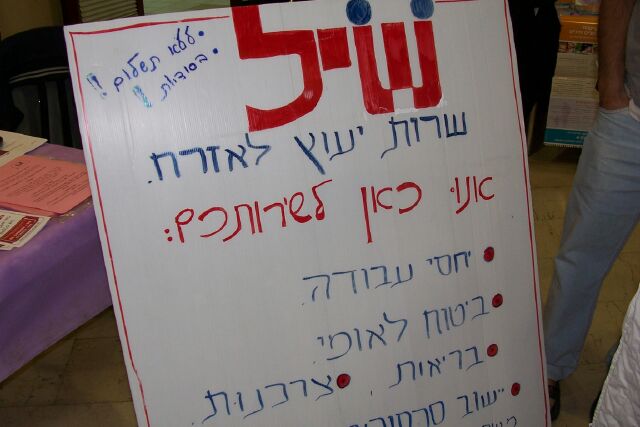 שי״ל
ללא תשלום!
בסודיות!
שרות יעוץ לאזרח.
אנו כאן לשרותכם:
יחסי עבודה.
ביטוח לאומי.
בריאות צרכנות
יישוב